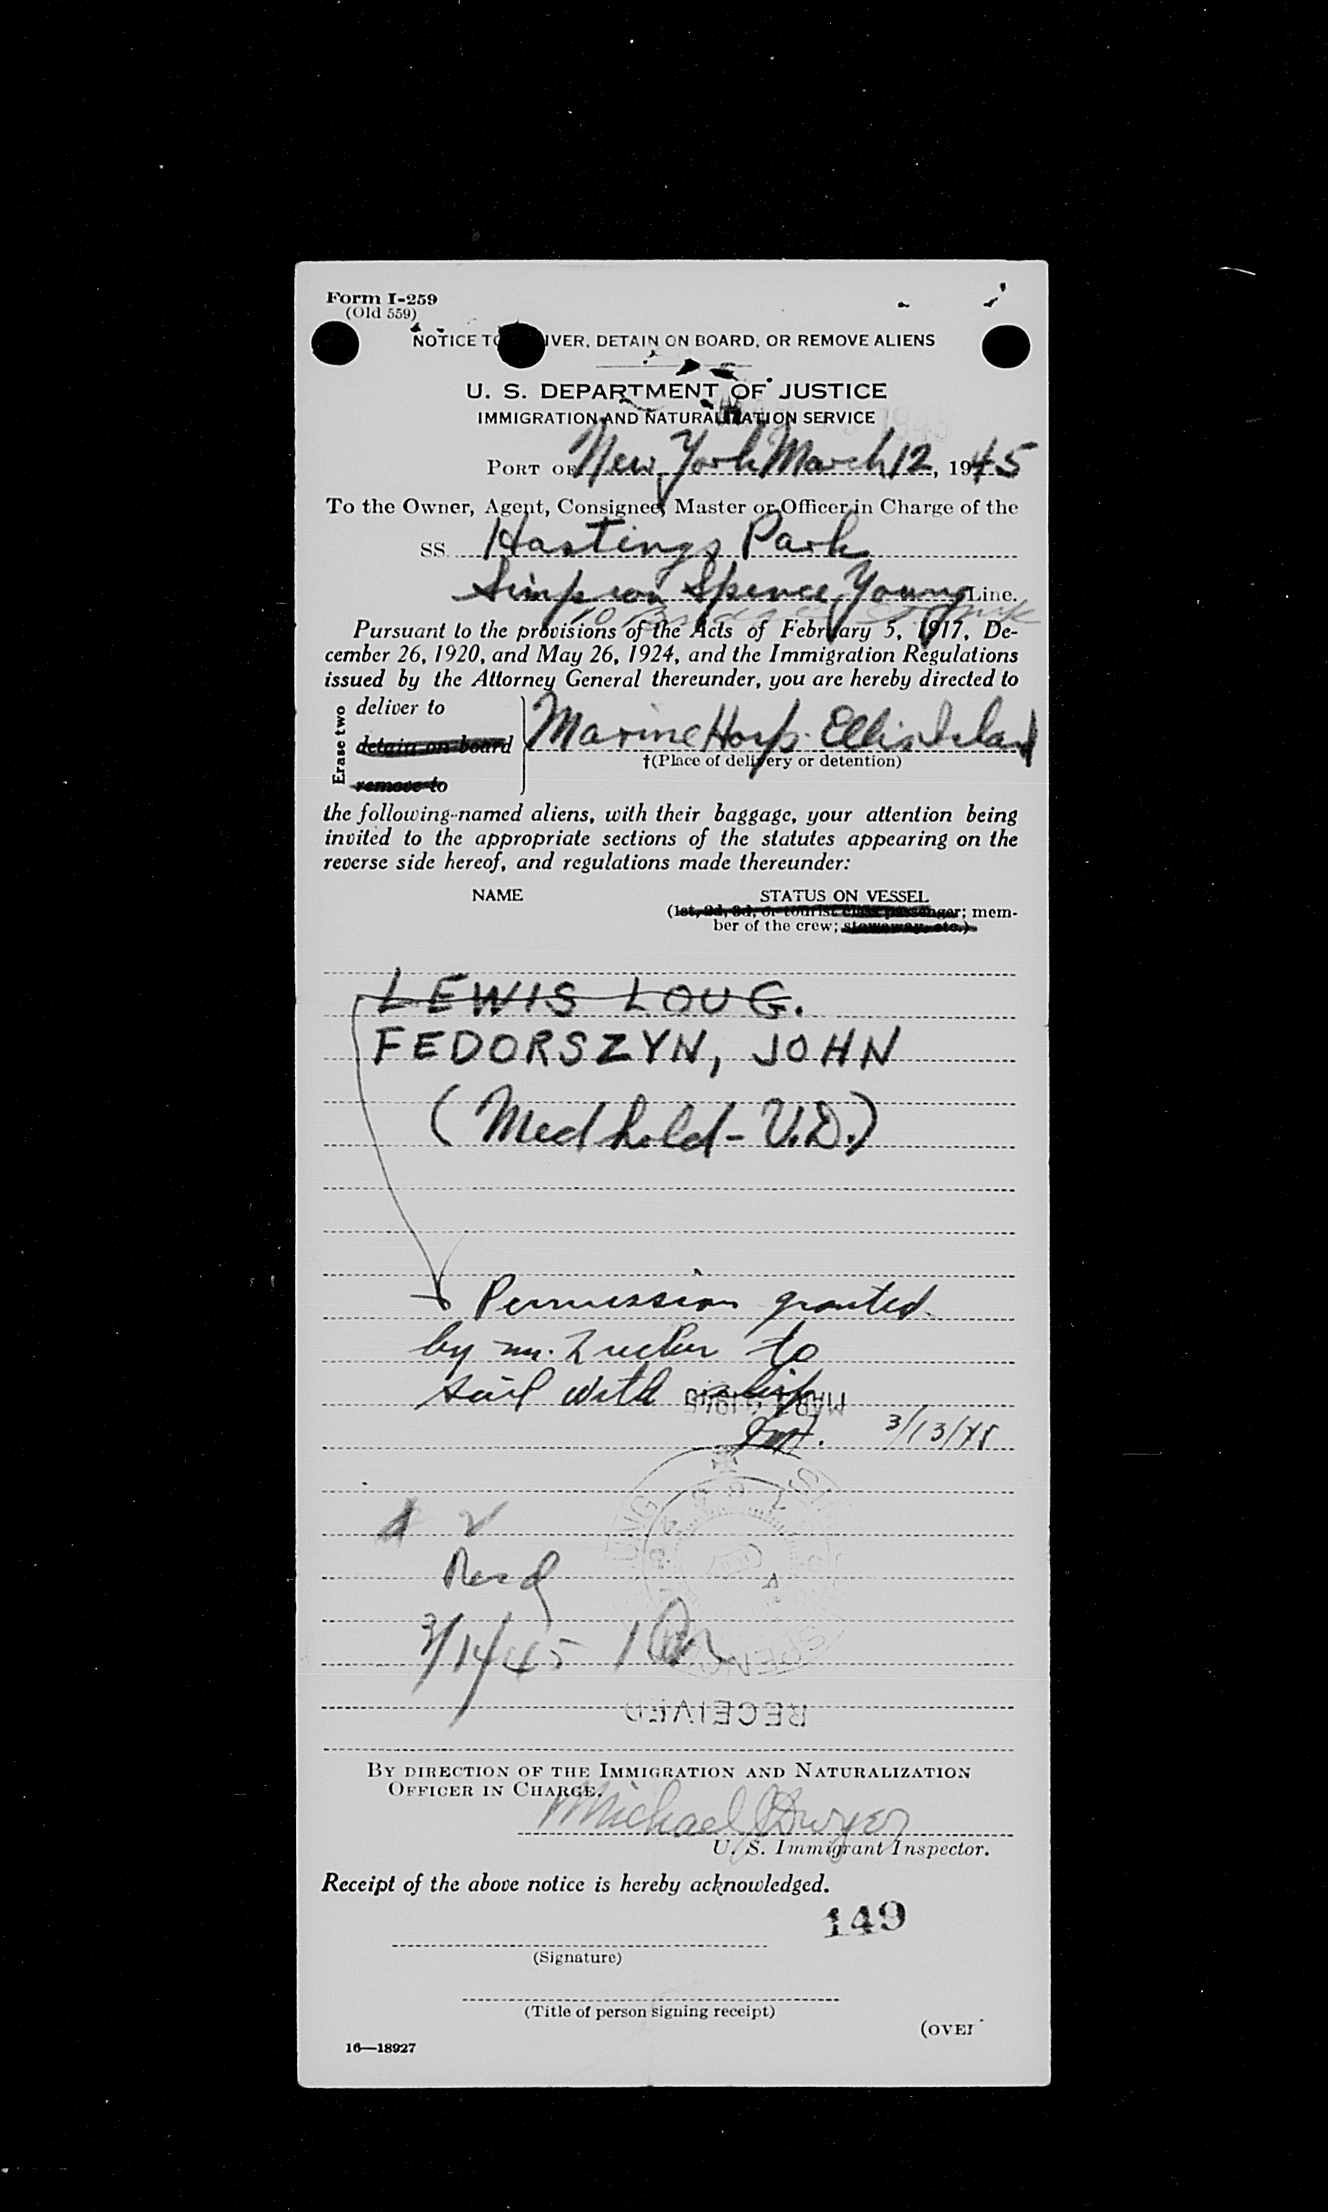 Form I-259
(Old 559)
NOTICE TO IVER, DETAIN ON BOARD, OR REMOVE ALIENS
U. S. DEPARTMENT OF JUSTICE
IMMIGRATION AND NATURALIZATION SERVICE
PORT OF New York March 12, 1945
To the Owner, Agent, Consignee, Master or Officer in Charge of the
SS. Hastings Park
Simpson Spence Young Line.
Pursuant to the provisions of the Acts of February 5, 1917, De-
cember 26, 1920, and May 26, 1924, and the Immigration Regulations
issued by the Attorney General thereunder, you are hereby directed to
Erase two
deliver to
detain on board
remove to
Marine Hosp. Ellis Island
†(Place of delivery or detention)
the following-named aliens, with their baggage, your attention being
invited to the appropriate sections of the statutes appearing on the
reverse side hereof, and regulations made thereunder:
NAME STATUS ON VESSEL
(1st, 2d, 3d, or tourist class passenger; mem-
ber of the crew; stowaway, etc.)
LEWIS LOU G.
FEDORSZYN, JOHN
(Med hold - V.D.)
Permission granted
by Mr. Zucker to
sail with ship
3/13/45
3/14/45
RECEIVED
BY DIRECTION OF THE IMMIGRATION AND NATURALIZATION
OFFICER IN CHARGE.
Michael J Dwyer
U. S. Immigrant Inspector.
Receipt of the above notice is hereby acknowledged.
149
(Signature)
(Title of person signing receipt)
(OVER
16—18927